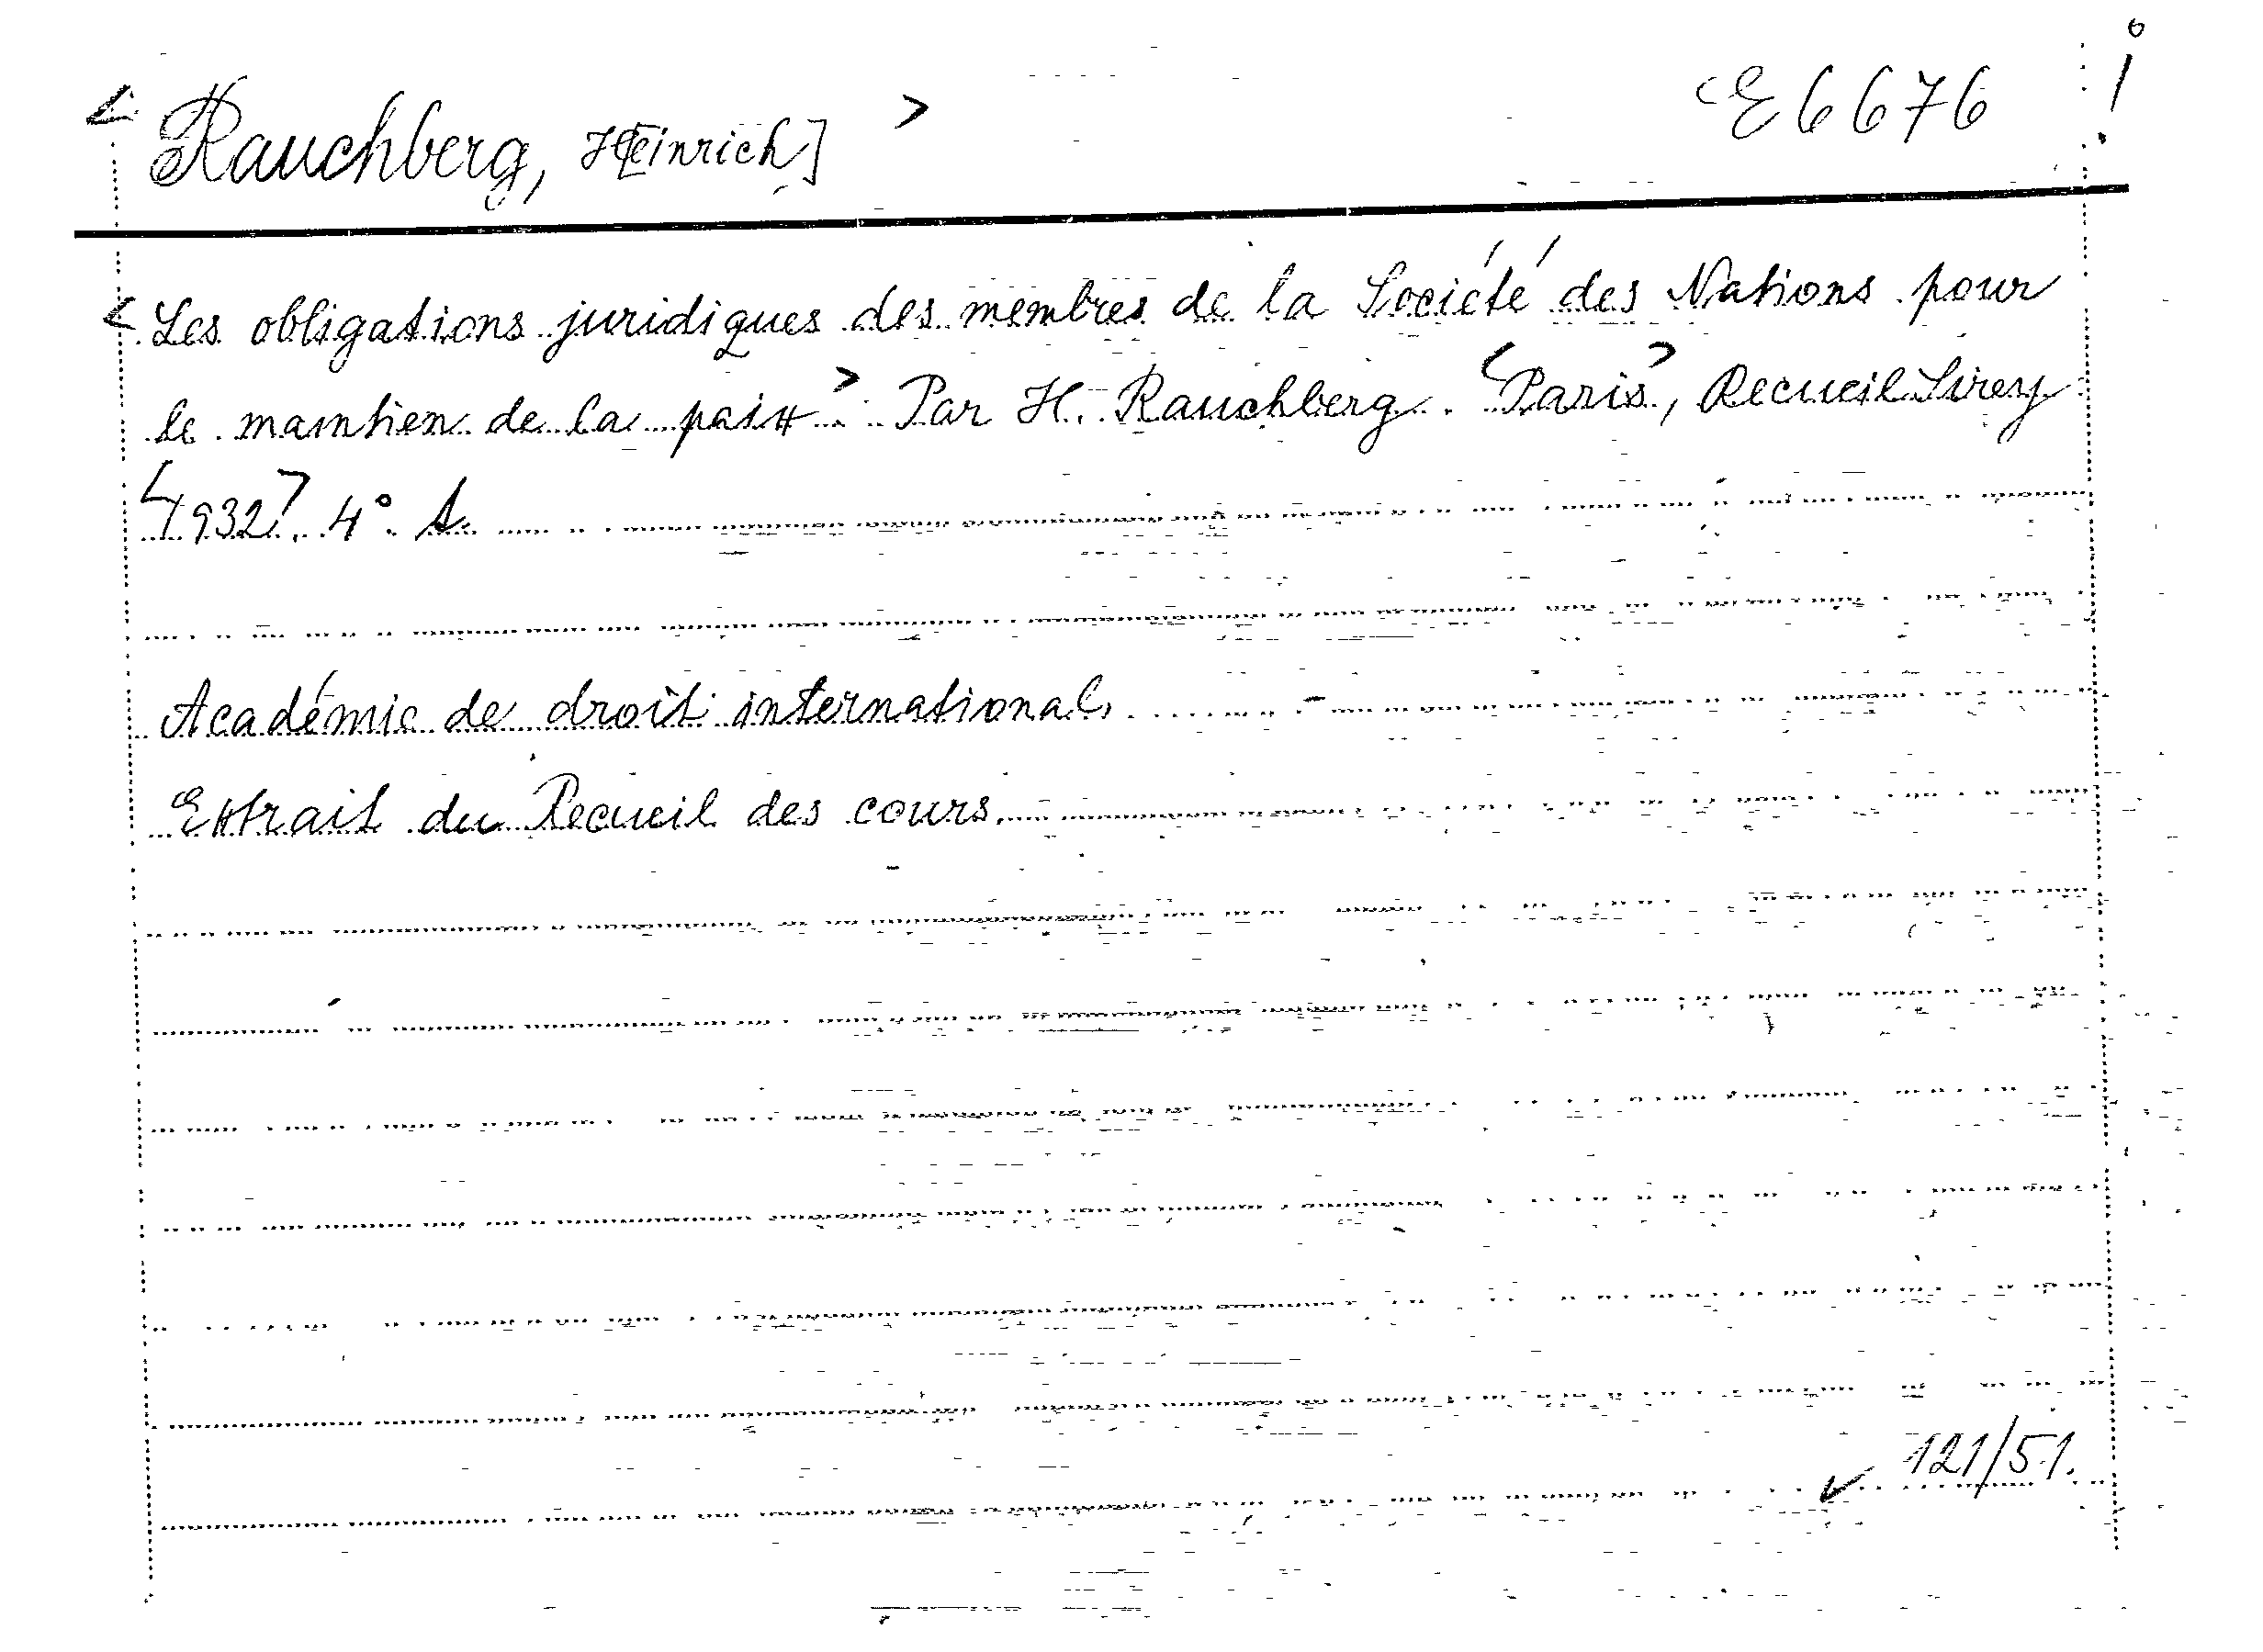 < Rauchberg, H[einrich] > E 6676 !
< Les obligations juridiques des membres de la Société des Nations pour
le maintien de la paix > . Par H. Rauchberg. <Paris>, Recueil Sirey
<1932>. 4°.
Académie de droit international.
Extrait du Recueil des cours.
121/51.